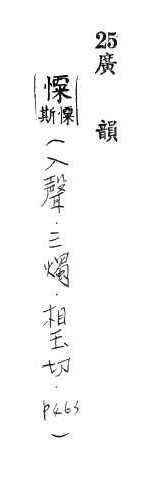 25廣韻
㥛
斯㥛
（入聲·三燭·相玉切·p463）